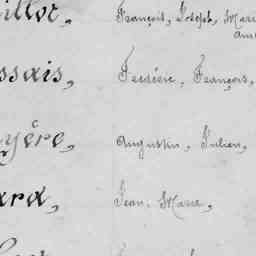 illot, François, Joseph, Marie
ssais, Frédéric, François,
yère, Augustin, Julien,
ard, Jean-Marie,